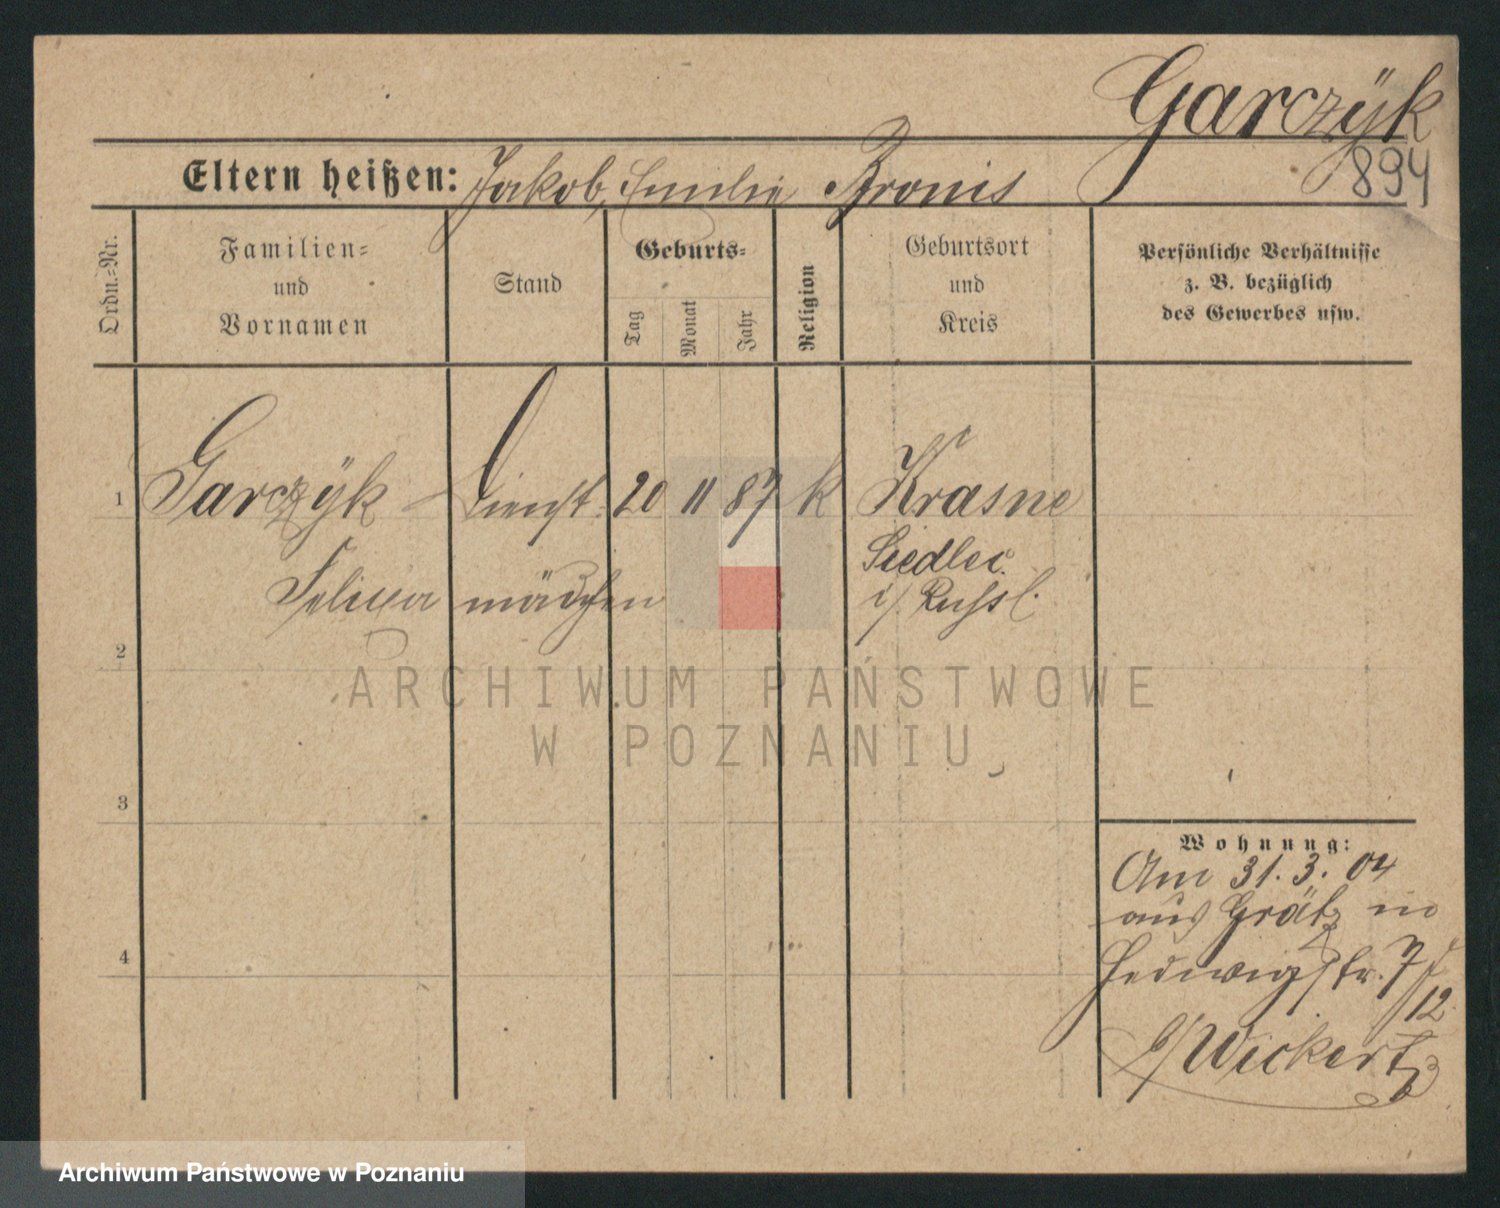 Garczÿk
894
Eltern heißen: Jakob, Emilie Bronis
Ordn.-Nr.
Familien-
und
Vornamen
Stand
Geburts-
Tag
Monat
Jahr
Religion
Geburtsort
und
Kreis
Persönliche Verhältnisse
z. B. bezüglich
des Gewerbes usw.
1 Garczÿk Dienst- 20 11 87 k Krasne
Siedlec
Felicia mädchen i/ Russl.
2
ARCHIWUM PAŃSTWOWE
W POZNANIU
3
Wohnung:
Am 31.3.04
aus Grätz in
Hedwigstr. 7/
12
b/ Wickert
4
Archiwum Państwowe w Poznaniu